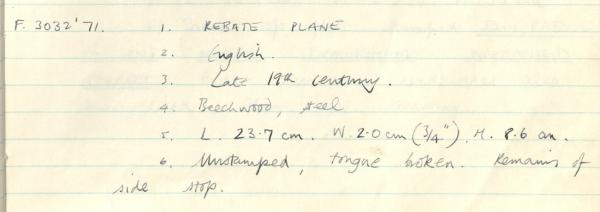 F. 3032'71. 1. REBATE PLANE
2. English.
3. Late 19th century.
4. Beechwood, steel
5. L. 23.7 cm. W. 2.0 cm (3/4"). H. 8.6 cm.
6. Unstamped, tongue broken. Remains of
side stop.